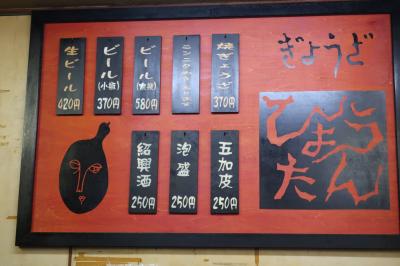 ぎょうざ
ひょうたん
焼ぎょうざ
370円
ビール
(大瓶)
580円
ビール
(小瓶)
370円
生ビール
420円
五加皮
250円
泡盛
250円
紹興酒
250円